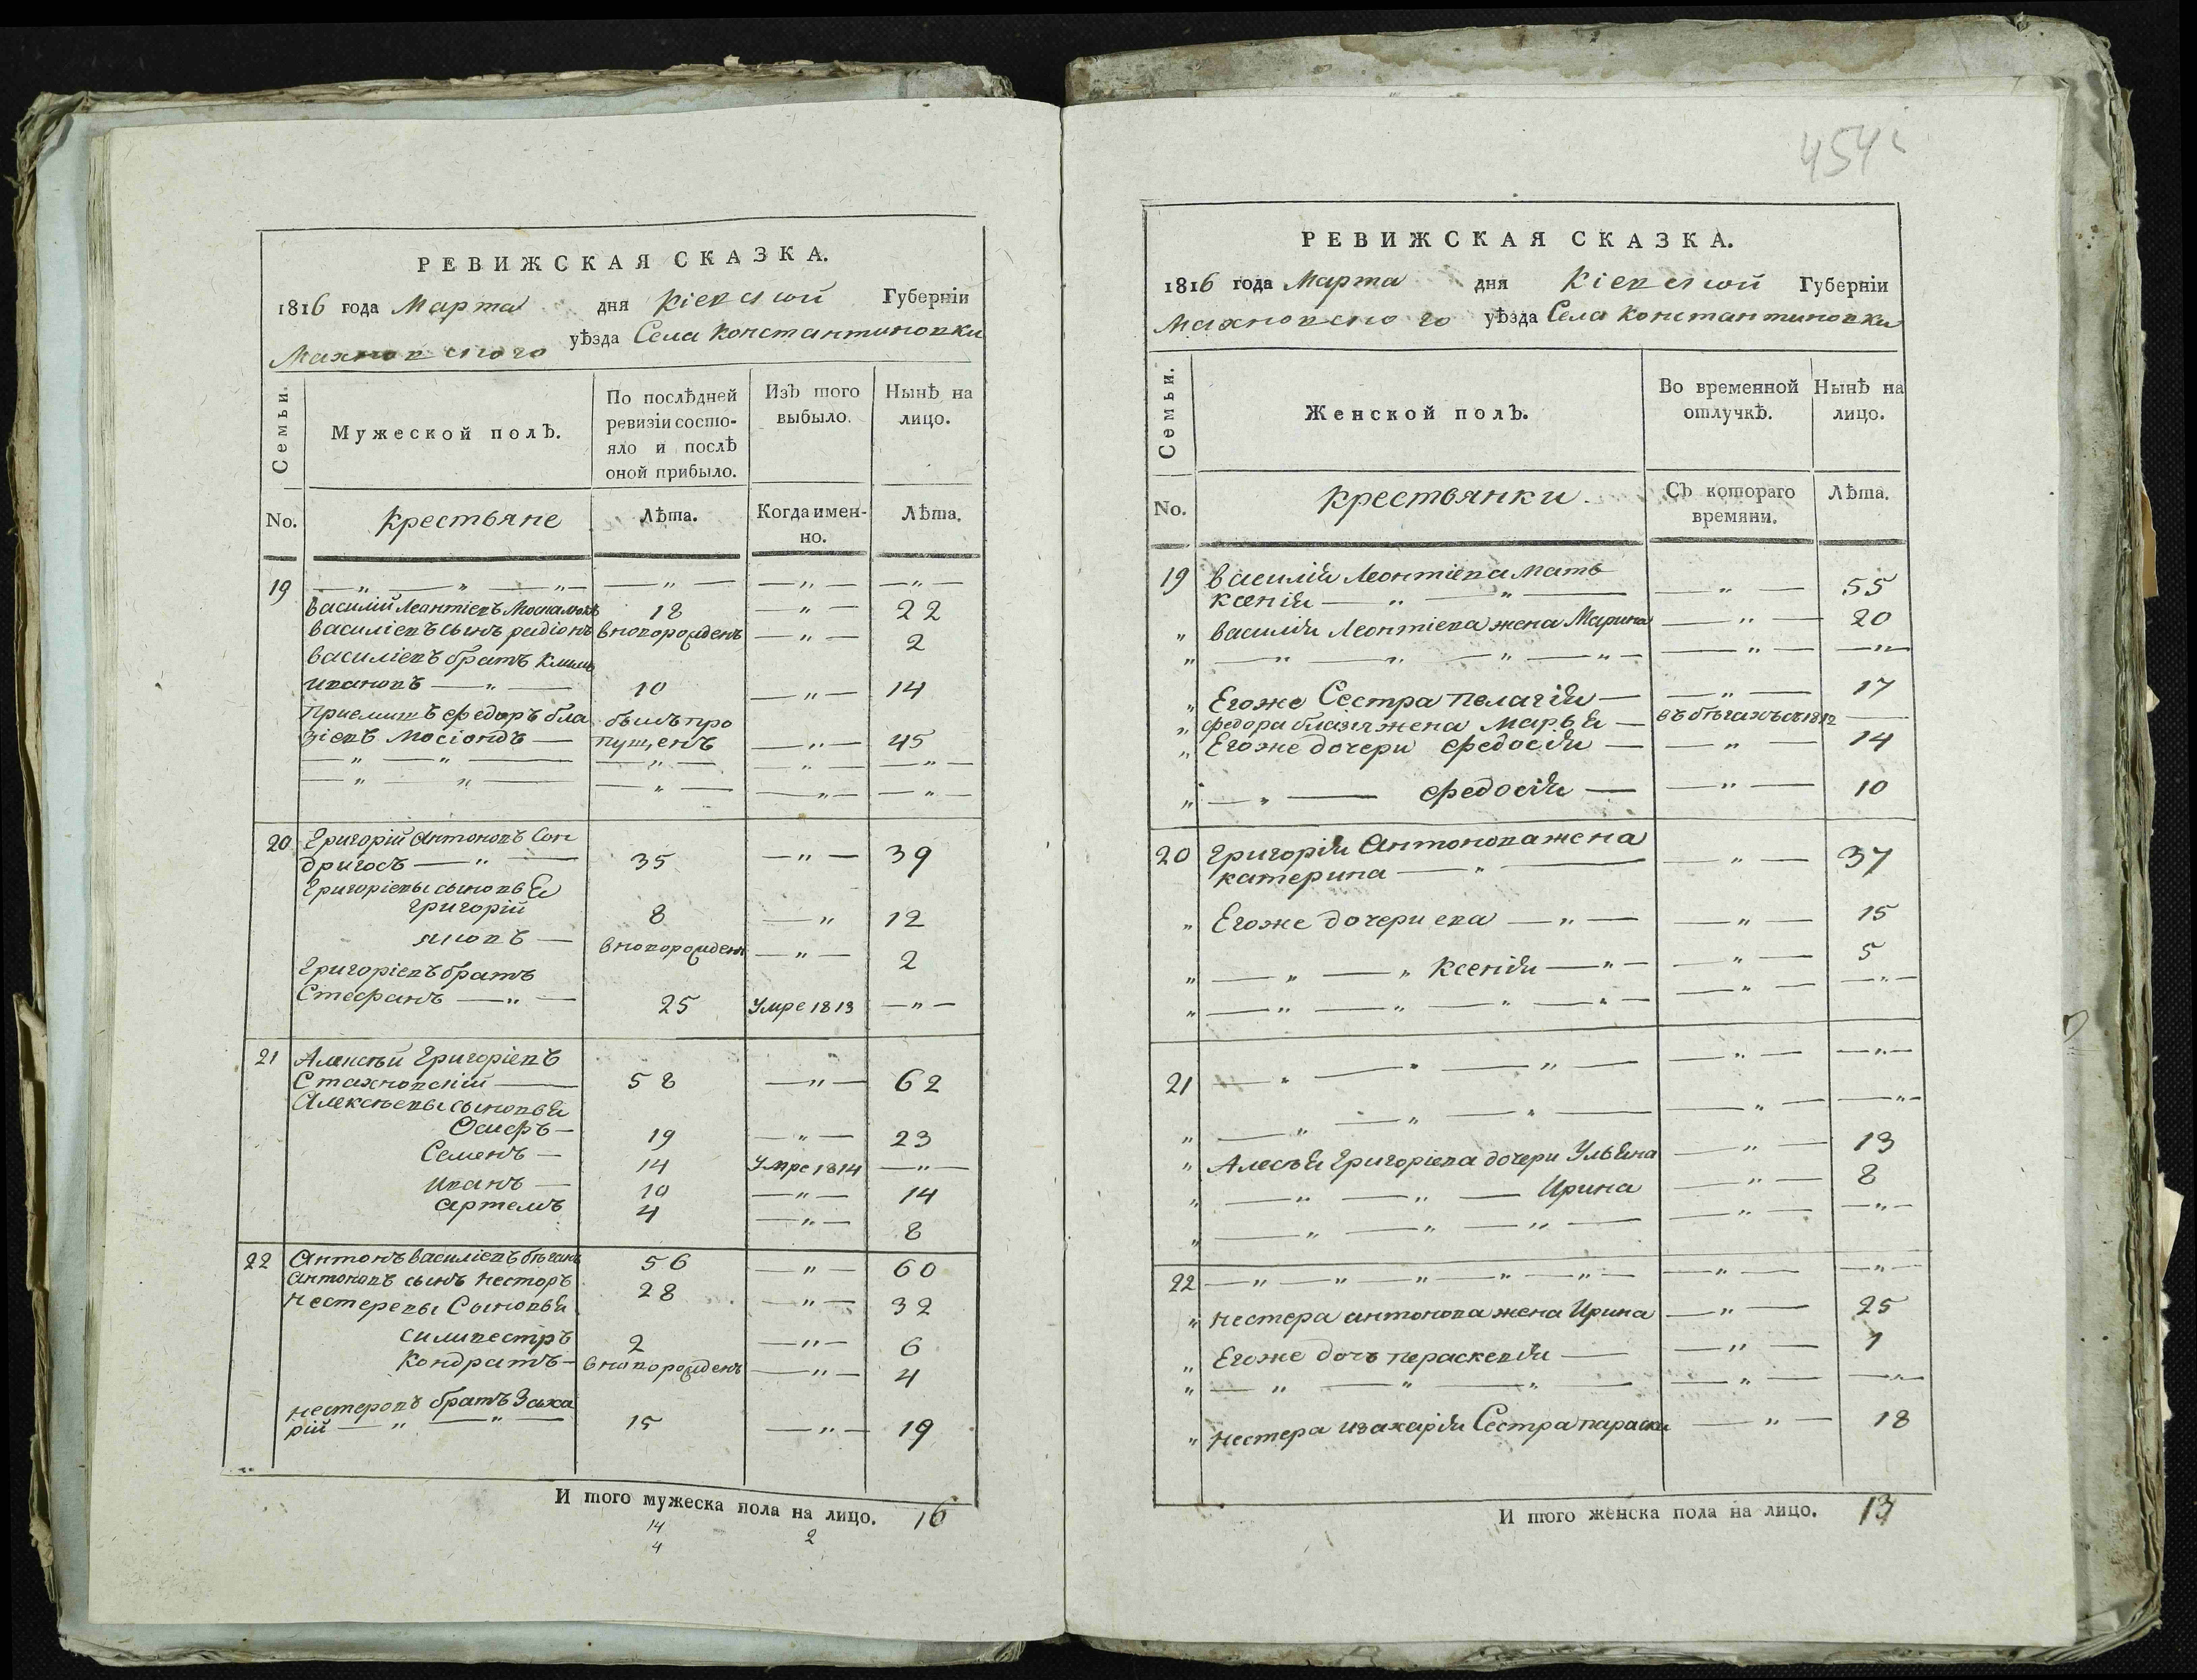 РЕВИЖСКАЯ СКАЗКА.
1816 года Марта дня Кіевской Губерніи
Махновского уѣзда Села Константиновки
Семьи.
Мужеской полъ.
По послѣдней ревизіи состояло и послѣ оной прибыло.
Изъ того выбыло.
Нынѣ на лицо.
No. Крестьяне Лѣта. Когда именно. Лѣта.
19 — „ — „ — „ — — „ — — „ — — „ —
Василій Леонтіевъ Москалюкъ 18 — „ — 22
Василіевъ сынъ радіонъ вноворожденъ — „ — 2
Василіевъ братъ Климъ
Ивановъ — „ — 10 — „ — 14
Приемышъ Федоръ бла былъ про
зіевъ Мосіондъ — пущенъ — „ — 45
— „ — „ — — „ — — „ — — „ —
— „ — „ — — „ — — „ — — „ —
20 Григорій Антоновъ Сон
дригосъ — „ — 35 — „ — 39
Григоріевы сыновья
григорій 8 — „ 12
яковъ — вноворожден — „ — 2
Григоріевъ братъ
Стефанъ — „ — 25 Умре 1813 — „ —
21 Алексѣй Григоріевъ
Стахновскій — 58 — „ — 62
Алексѣевы сыновья
Осифъ — 19 — „ — 23
Семенъ — 14 Умре 1814 — „ —
Иванъ — 10 — „ — 14
артемъ 4 — „ — 8
22 Антонъ Василіевъ бѣганъ 56 — „ — 60
антоновъ сынъ Несторъ 28 — „ — 32
Нестеревы Сыновья
силивестръ 2 — „ — 6
Кондратъ — вноворожденъ — „ — 4
нестеровъ братъ Заха
рій — „ — „ — 15 — „ — 19
И того мужеска пола на лицо. 16
14 2
4
454
РЕВИЖСКАЯ СКАЗКА.
1816 года Марта дня Кіевской Губерніи
Махновского уѣзда Села Константиновки
Семьи.
Женской полъ.
Во временной отлучкѣ.
Нынѣ на лицо.
No. Крестьянки. Съ котораго времяни. Лѣта.
19 Василія Леонтіева Мать
ксенія — „ — „ — — „ — 55
„ Василія Леонтіева жена Марина — „ — 20
„ — „ — „ — „ — „ — — „ — — „ —
„ Егоже Сестра Пелагія — — „ — 17
„ Федора блазія жена Марья — въ бѣгахъ съ 1812 —
„ Егоже дочери Федосія — — „ — 14
„ — „ — Федосія — — „ — 10
20 Григорія Антонова жена
катерина — „ — — „ — 37
„ Егоже дочери ева — „ — — „ — 15
„ — „ — „ Ксенія — „ — — „ — 5
„ — „ — „ — „ — „ — — „ — — „ —
21 — „ — „ — „ — — „ — — „ —
„ — „ — „ — „ — — „ — — „ —
„ Алесѣя Григоріева дочери Ульяна — „ — 13
„ — „ — „ — Ирина — „ — 8
„ — „ — „ — „ — — „ — — „ —
22 — „ — „ — „ — „ — „ — — „ — — „ —
„ Нестера антонова жена Ирина — „ — 25
„ Егоже дочь пераскевія — — „ — 7
„ — „ — „ — „ — — „ — — „ —
„ Нестера изахарія Сестра параски — „ — 18
И того женска пола на лицо. 13